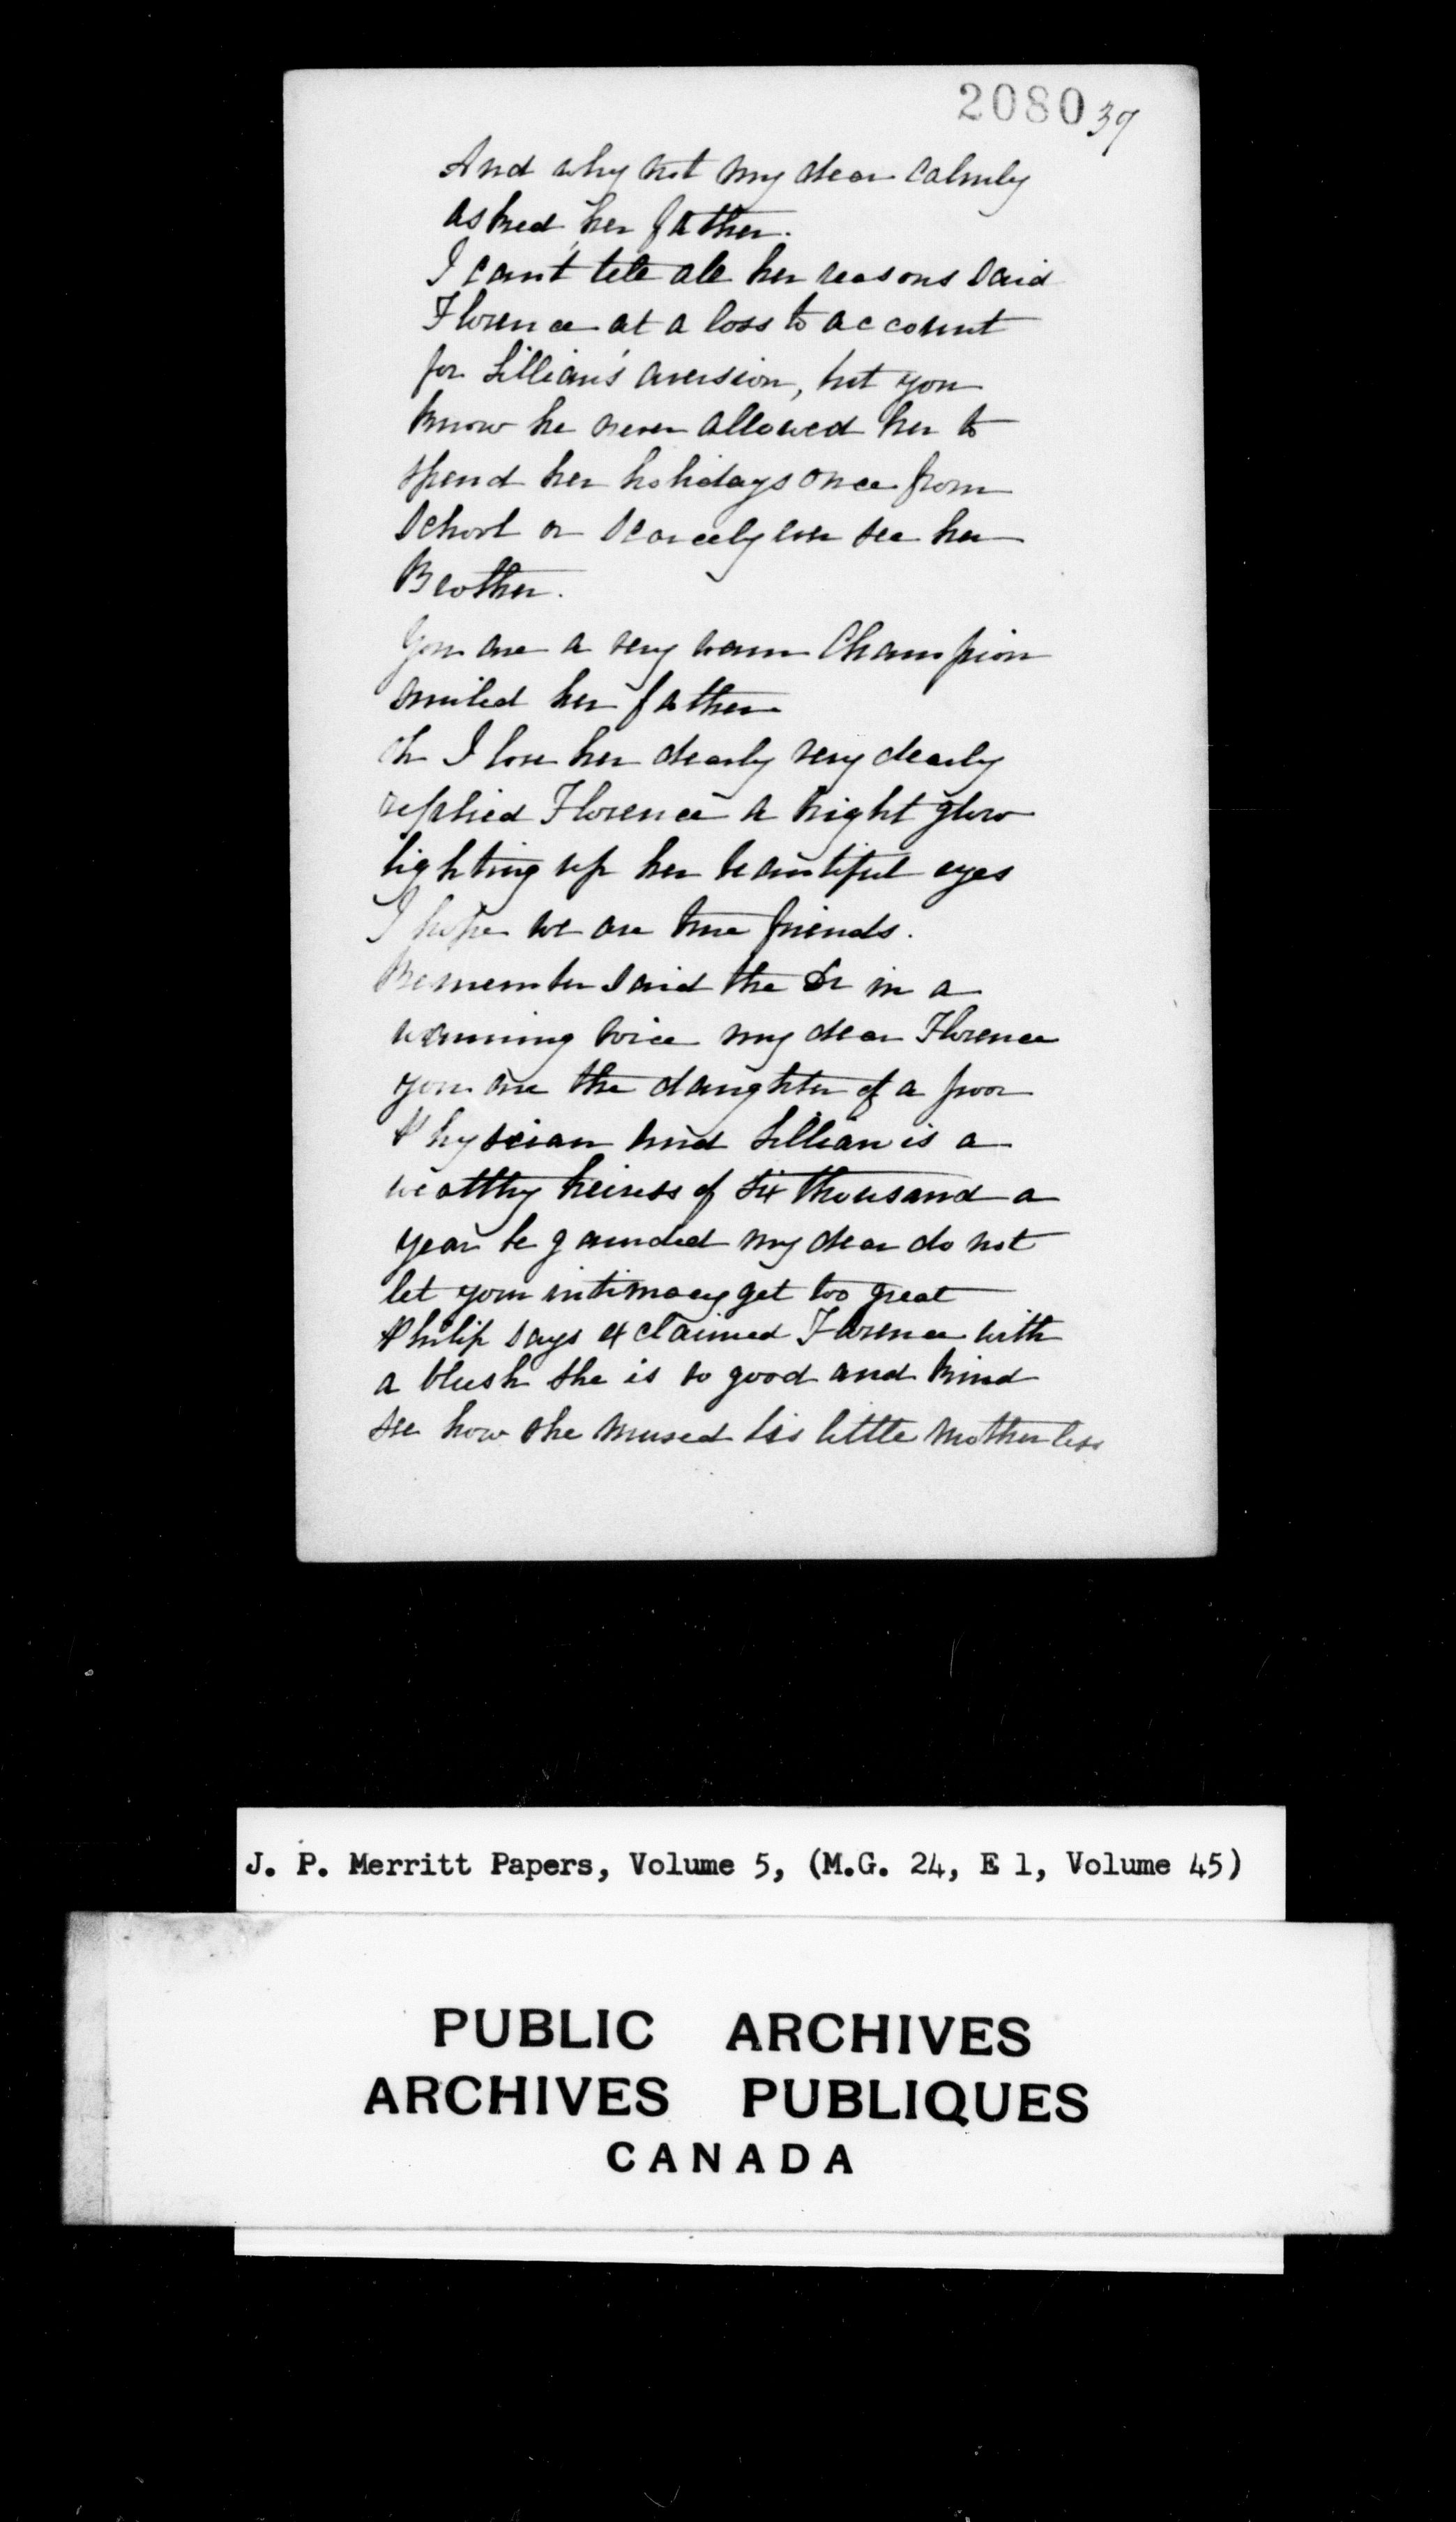 2080 39
And why not my dear calmly
asked her father.
I can't tell all her reasons said
Florence at a loss to account
for Lillian's aversion, but you
know he never allowed her to
spend her holidays once from
school or scarcely ever see her
Brother.
You are a very warm Champion
smiled her father
Oh I love her dearly very dearly
replied Florence a bright glow
lighting up her beautiful eyes
I hope we are true friends.
Remember said the Dr in a
warning voice my dear Florence
you are the daughter of a poor
Physcian and Lillian is a
wealthy heiress of six thousand a
year be gaurded my dear do not
let your intimacy get too great
Philip says exclaimed Florence with
a blush she is so good and kind
see how she nursed his little motherless
J. P. Merritt Papers, Volume 5, (M.G. 24, E 1, Volume 45)
PUBLIC ARCHIVES
ARCHIVES PUBLIQUES
CANADA